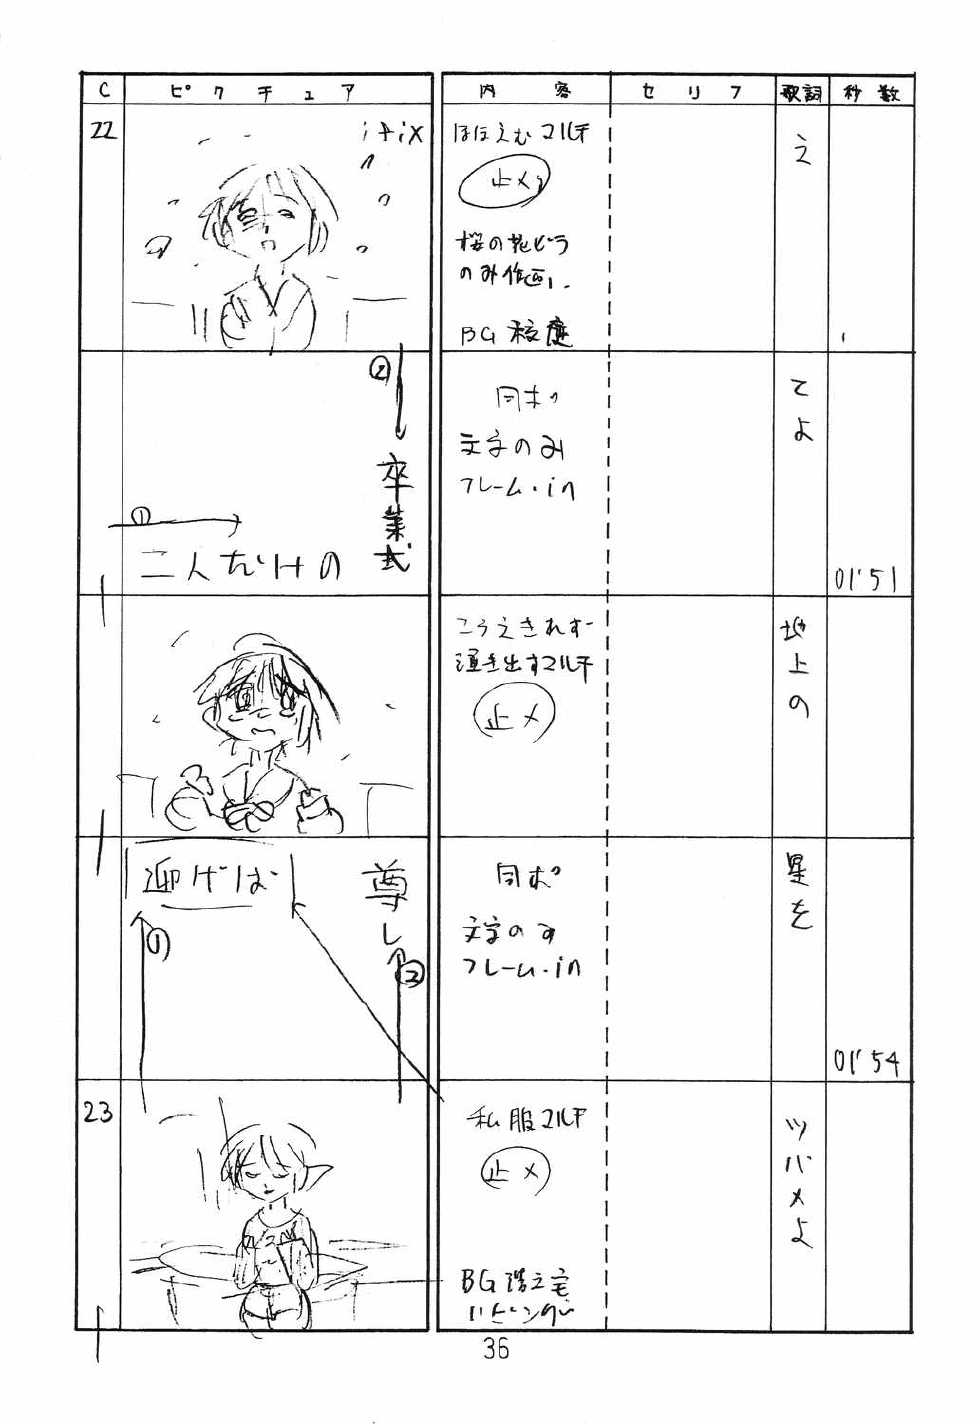 C ピクチュア 内容 セリフ 歌詞 秒数
22
ほほえむマルチ
止メ
桜の花びら
のみ作画
BG 校庭
え
②
卒業式
①
二人だけの
同ポ
文字のみ
フレーム・in
てよ
01'51
こらえきれず
泣き出すマルチ
止メ
地上の
迎げば
尊し
①
②
同ポ
文字のみ
フレーム・in
星を
01'54
23
私服マルチ
止メ
BG 浩之宅
ツバメよ
36